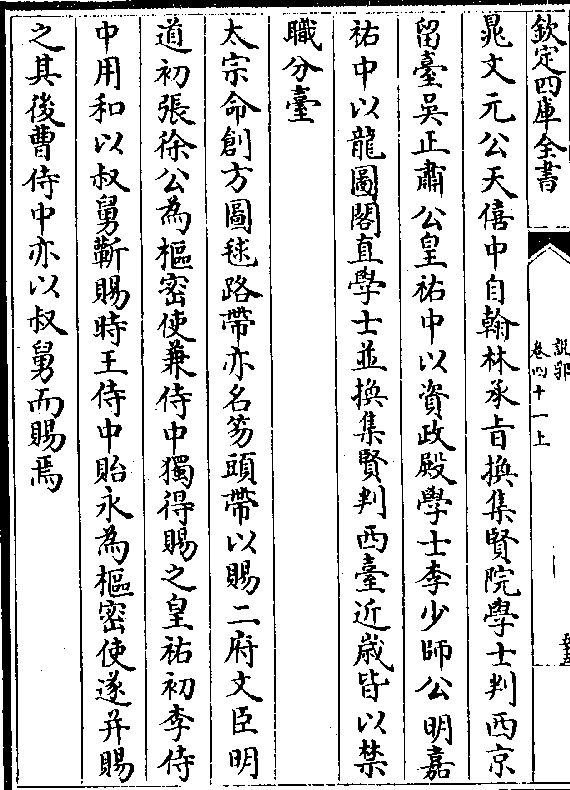 欽定四庫全書
說郛
卷四十一上
晁文元公天僖中自翰林承旨換集賢院學士判西京
留臺吳正肅公皇祐中以資政殿學士李少師公明嘉
祐中以龍圖閣直學士並換集賢判西臺近歲皆以禁
職分臺
太宗命創方圖毬路帶亦名笏頭帶以賜二府文臣明
道初張徐公為樞密使兼侍中獨得賜之皇祐初李侍
中用和以叔舅靳賜時王侍中貽永為樞密使遂并賜
之其後曹侍中亦以叔舅而賜焉